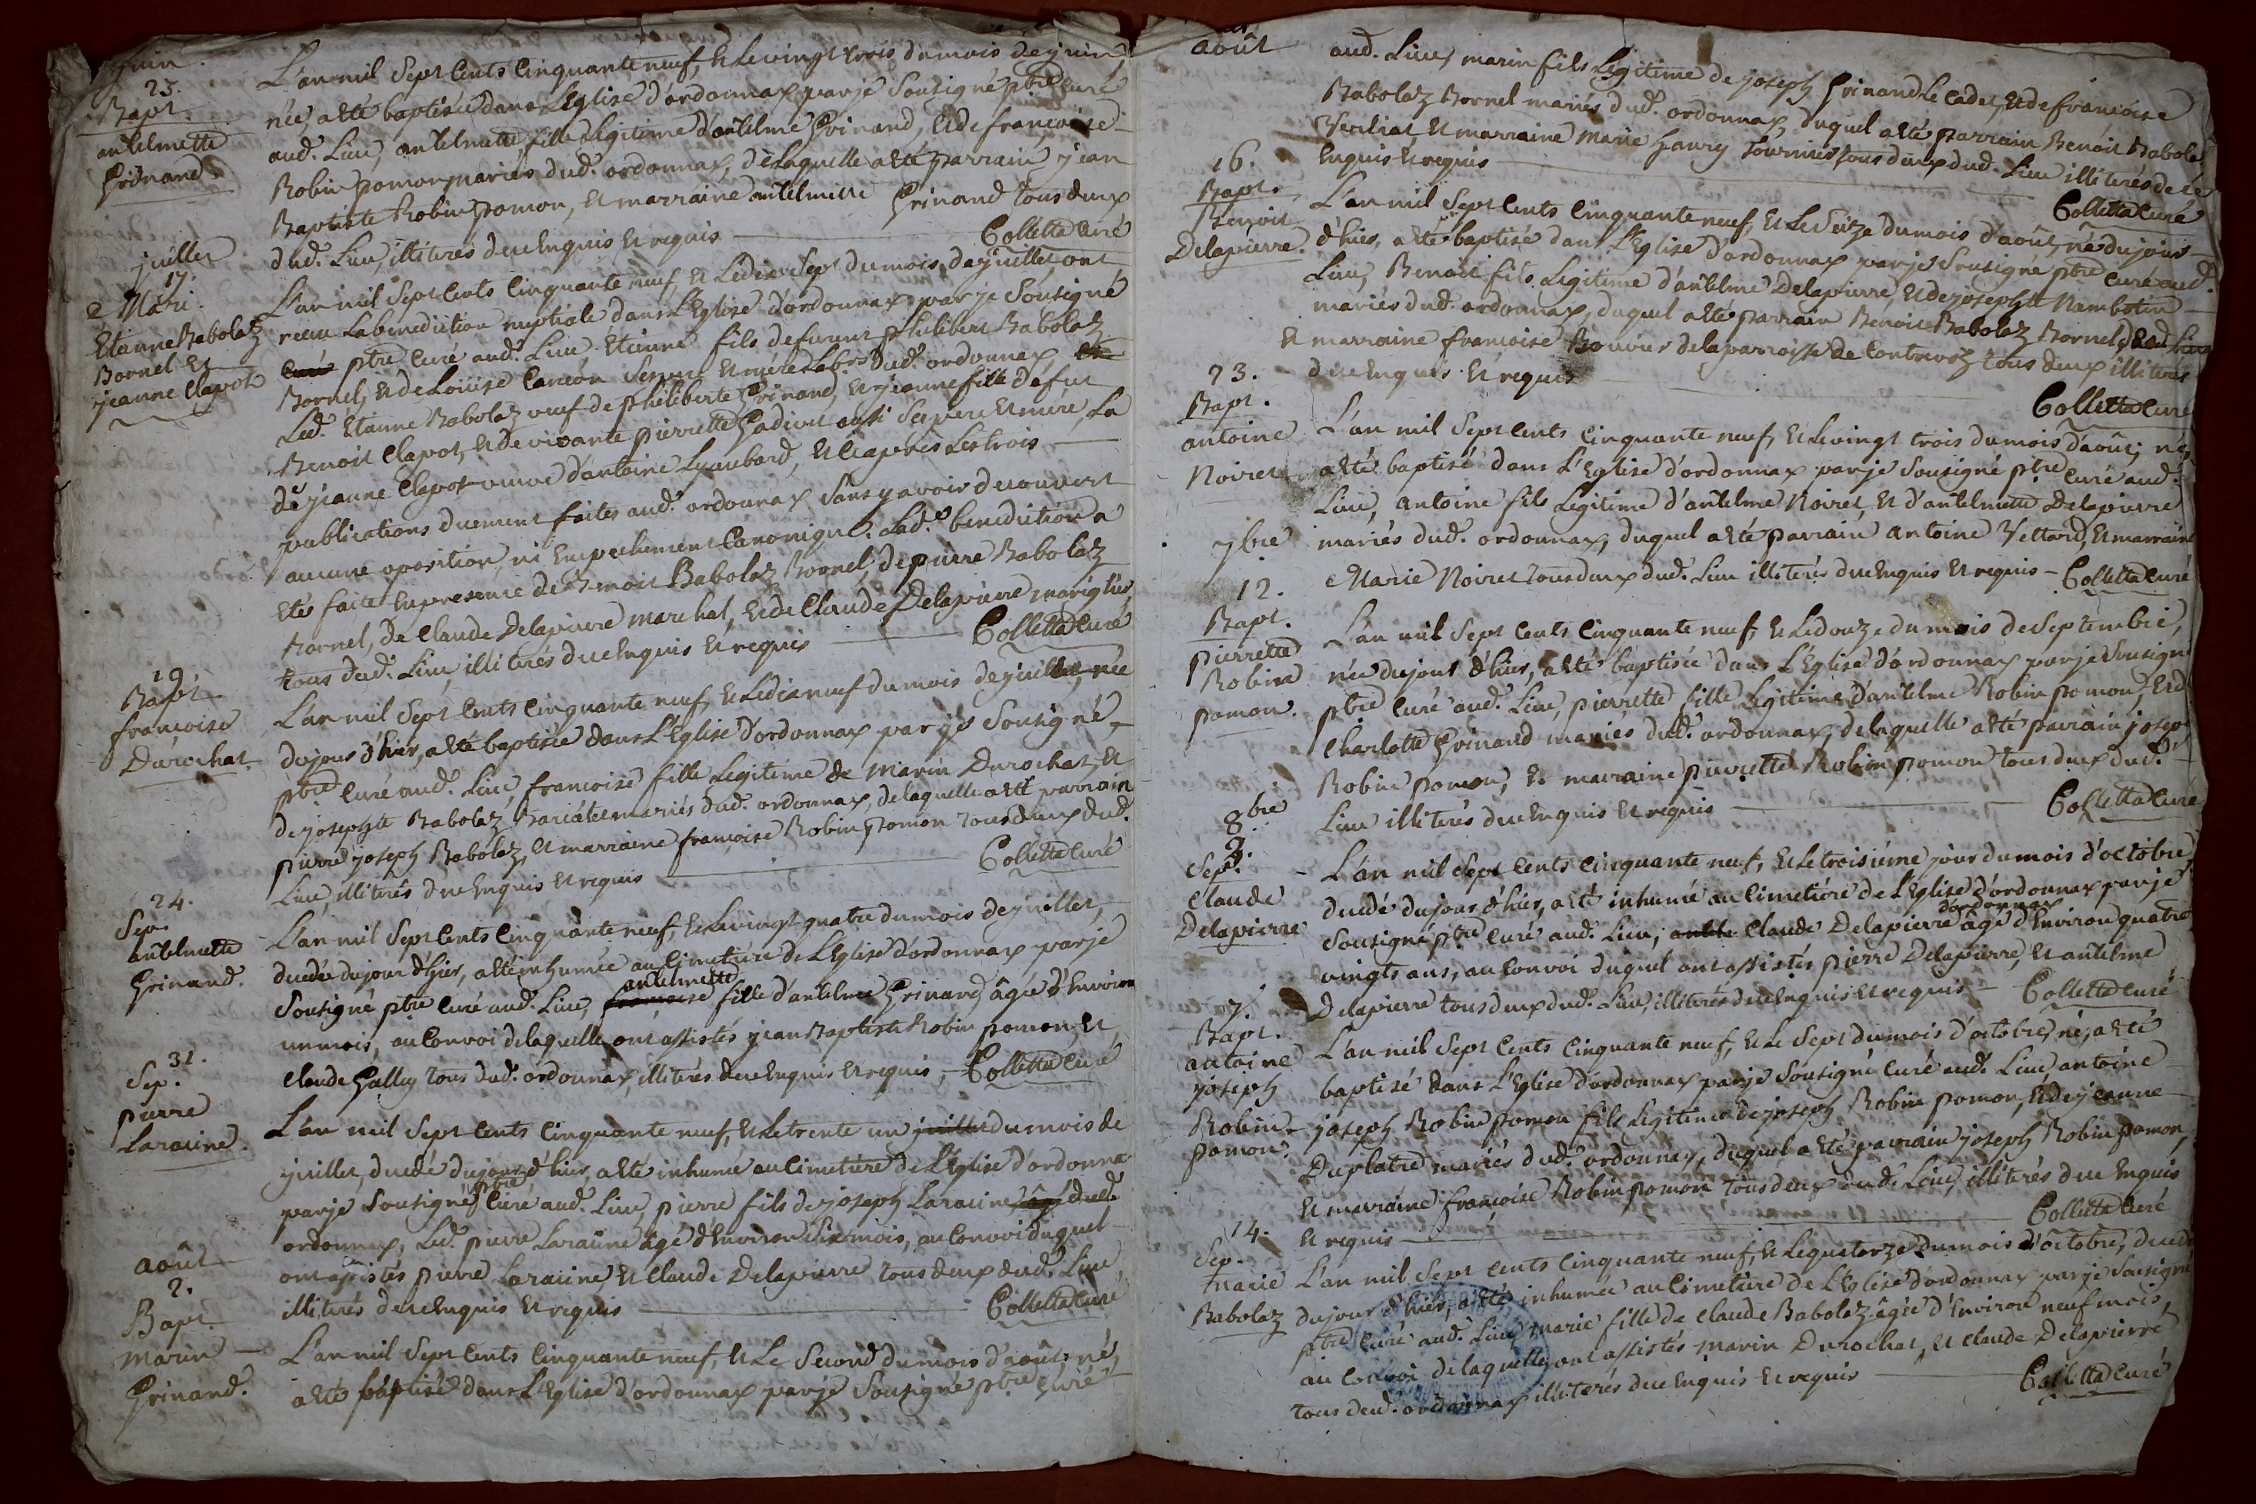 juin
23.
Bapt.
antelmette
Grinand
L'an mil Sept Cents Cinquante neuf, & Le vingt trois du mois de juin,
née, a eté baptisée dans L'Eglise d'ordonnax par je Sousigné ptre Curé
aud. Lieu, antelmette fille Legitime d'antelme Grinand, et de francoise
Robin pomon mariés dud. ordonnax, de Laquelle a eté parrain jean
Baptiste Robin pomon, et marraine antelmette Grinand tous deux
dud. Lieu, illiterés de ce Enquis et requis Colletta Curé
juillet
17
Mari.
Etienne Babolaz
Bornel et
jeanne Clapot
L'an mil Sept Cents Cinquante neuf, et Le dix Sept du mois de juillet ont
recu La benediction nuptiale dans L'Eglise d'ordonnax par je Sousigné
Curé ptre Curé aud. Lieu Etienne fils de furent philibert Babolaz
Bornel, et de Louise Cancon Ses pere et mere Labrs dud. ordonnax et
Led. Etienne Babolaz veuf de philiberte Grinand, et jeanne fille de fut
Benoit Clapot, et de vivante pierrette Gadivet aussi Ses pere et mere, La
de jeanne Clapot veuve d'antoine Lyaubard, et ce apres Les trois
publications duement faites aud. ordonnax Sans y avoir decouvert
aucune oposition, ni Empechement Canonique. Lad.e benediction a
eté faite En presence de Benoit Babolaz Bornel, de pierre Babolaz
Bornel, de Claude Delapierre marechal, et de Claude Delapierre mariglier,
tous dud. Lieu, illiterés de ce Enquis et requis Colletta Curé
19
Bapt.
francoise
Durochat
L'an mil Sept Cents Cinquante neuf, & Le dix neuf du mois de juillet, née
du jour d'hier, a eté baptisée dans L'Eglise d'ordonnax par je Sousigné,
ptre Curé aud. Lieu, francoise fille Legitime de Marin Durochat, et
de josephte Babolaz Bariatet mariés dud. ordonnax, de laquelle a eté parrain
pierre joseph Babolaz, et marraine francoise Robin pomon tous deux dud.
Lieu, illiterés de ce Enquis et requis Colletta Curé
24.
Sep.
antelmette
Grinand.
L'an mil Sept Cents Cinquante neuf, & Le vingt quatre du mois de juillet,
decedée du jour d'hier, a eté inhumée au Cimetiere de L'Eglise d'ordonnax par je
antelmette
Sousigné ptre Curé aud. Lieu, francoise fille d'antelme Grinand, âgée d'Environ
un mois, au Convoi de laquelle ont assistés jean Baptiste Robin pomon, et
Claude Gallay tous dud. ordonnax, illiterés de ce Enquis et requis, Colletta Curé
31.
Sep.
pierre
Laraine.
L'an mil Sept Cents Cinquante neuf, & Le trente un juillet du mois de
juillet, decedé du jour d'hier, a eté inhumé au Cimetiere de L'Eglise d'ordonnax
par je Sousigné ptre Curé aud. Lieu, pierre fils de joseph Laraine âgé dud.
ordonnax, Led. pierre Laraine âgé d'Environ Six mois, au Convoi duquel
ont assistés pierre Laraine et Claude Delapierre tous deux dud. Lieu
illiterés de ce Enquis et requis Colletta Curé
août
2.
Bapt.
Marin
Grinand.
L'an mil Sept Cents Cinquante neuf, & Le Second du mois d'août, né,
a eté baptisé dans L'Eglise d'ordonnax par je Sousigné ptre Curé
août
aud. Lieu, marin fils Legitime de joseph Grinand Le Cadet, et de francoise
Babolaz Bornel mariés dud. ordonnax, duquel a eté parrain Benoit Babolaz
Veciliat, et marraine Marie Hanry Tournier tous deux dud. Lieu illiterés de ce
Enquis et requis Colletta Curé
16.
Bapt.
Benoit
Delapierre.
L'an mil Sept Cents Cinquante neuf, et Le Seize du mois d'août, né du jour
d'hier, a eté baptisé dans L'Eglise d'ordonnax par je Sousigné ptre Curé aud.
Lieu, Benoit fils Legitime d'antelme Delapierre, et de josephte Nambotin
mariés dud. ordonnax, duquel a eté parrain Benoit Babolaz Bornel, dud. Lieu
et marraine francoise Bouvier de la parroisse de Contrevoz tous deux illiterés
de ce Enquis et requis Colletta Curé
23.
Bapt.
antoine
Noiret
L'an mil Sept Cents Cinquante neuf, & Le vingt trois du mois d'août, né,
a eté baptisé dans L'Eglise d'ordonnax par je Sousigné ptre Curé aud.
Lieu, antoine fils Legitime d'antelme Noiret, et d'antelmette Delapierre
mariés dud. ordonnax, duquel a eté parrain antoine Vettard, et marraine
Marie Noiret tous deux dud. Lieu illiterés de ce Enquis et requis - Colletta Curé
7bre
12.
Bapt.
pierrette
Robin
pomon.
L'an mil Sept Cents Cinquante neuf, & Le douze du mois de Septembre,
née du jour d'hier, a eté baptisée dans L'Eglise d'ordonnax par je Sousigné
ptre Curé aud. Lieu, pierrette fille Legitime d'antelme Robin pomon, et de
Charlotte Grinand mariés dud. ordonnax, de laquelle a eté parrain joseph
Robin pomon, et marraine pierrette Robin pomon tous deux dud.
Lieu illiterés de ce Enquis et requis Colletta Curé
8bre
3.
Sep.
Claude
Delapierre
L'an mil Sept Cents Cinquante neuf, & Le troisième jour du mois d'octobre,
decedé du jour d'hier, a eté inhumé au Cimetiére de L'Eglise d'ordonnax par je
d'ordonnax
Sousigné ptre Curé aud. Lieu, Claude Delapierre âgé d'Environ quatre
vingts ans, au Convoi duquel ont assistés pierre Delapierre, et antelme
Delapierre tous deux dud. Lieu, illiterés de ce Enquis et requis - Colletta Curé
7.
Bapt.
antoine
joseph
Robin
pomon.
L'an mil Sept Cents Cinquante neuf, & Le Sept du mois d'octobre, né, a eté
baptisé dans L'Eglise d'ordonnax par je Sousigné Curé aud. Lieu, antoine
joseph Robin pomon fils Legitime de joseph Robin pomon, et de jeanne
Duplatre mariés dud. ordonnax, duquel a eté parrain joseph Robin pomon,
et marraine francoise Robin pomon tous deux dud. Lieu, illiterés de ce Enquis
et requis Colletta Curé
14.
Sep.
marie
Babolaz
L'an mil Sept Cents Cinquante neuf, & Le quatorze du mois d'octobre, decedée
du jour d'hier, a eté inhumée au Cimetiere de L'Eglise d'ordonnax par je Sousigné
ptre Curé aud. Lieu, marie fille de Claude Babolaz âgée d'Environ neuf mois,
au Convoi de laquelle ont assistés Marin Durochat, et Claude Delapierre
tous deud. ordonnax illiterés de ce Enquis et requis Colletta Curé